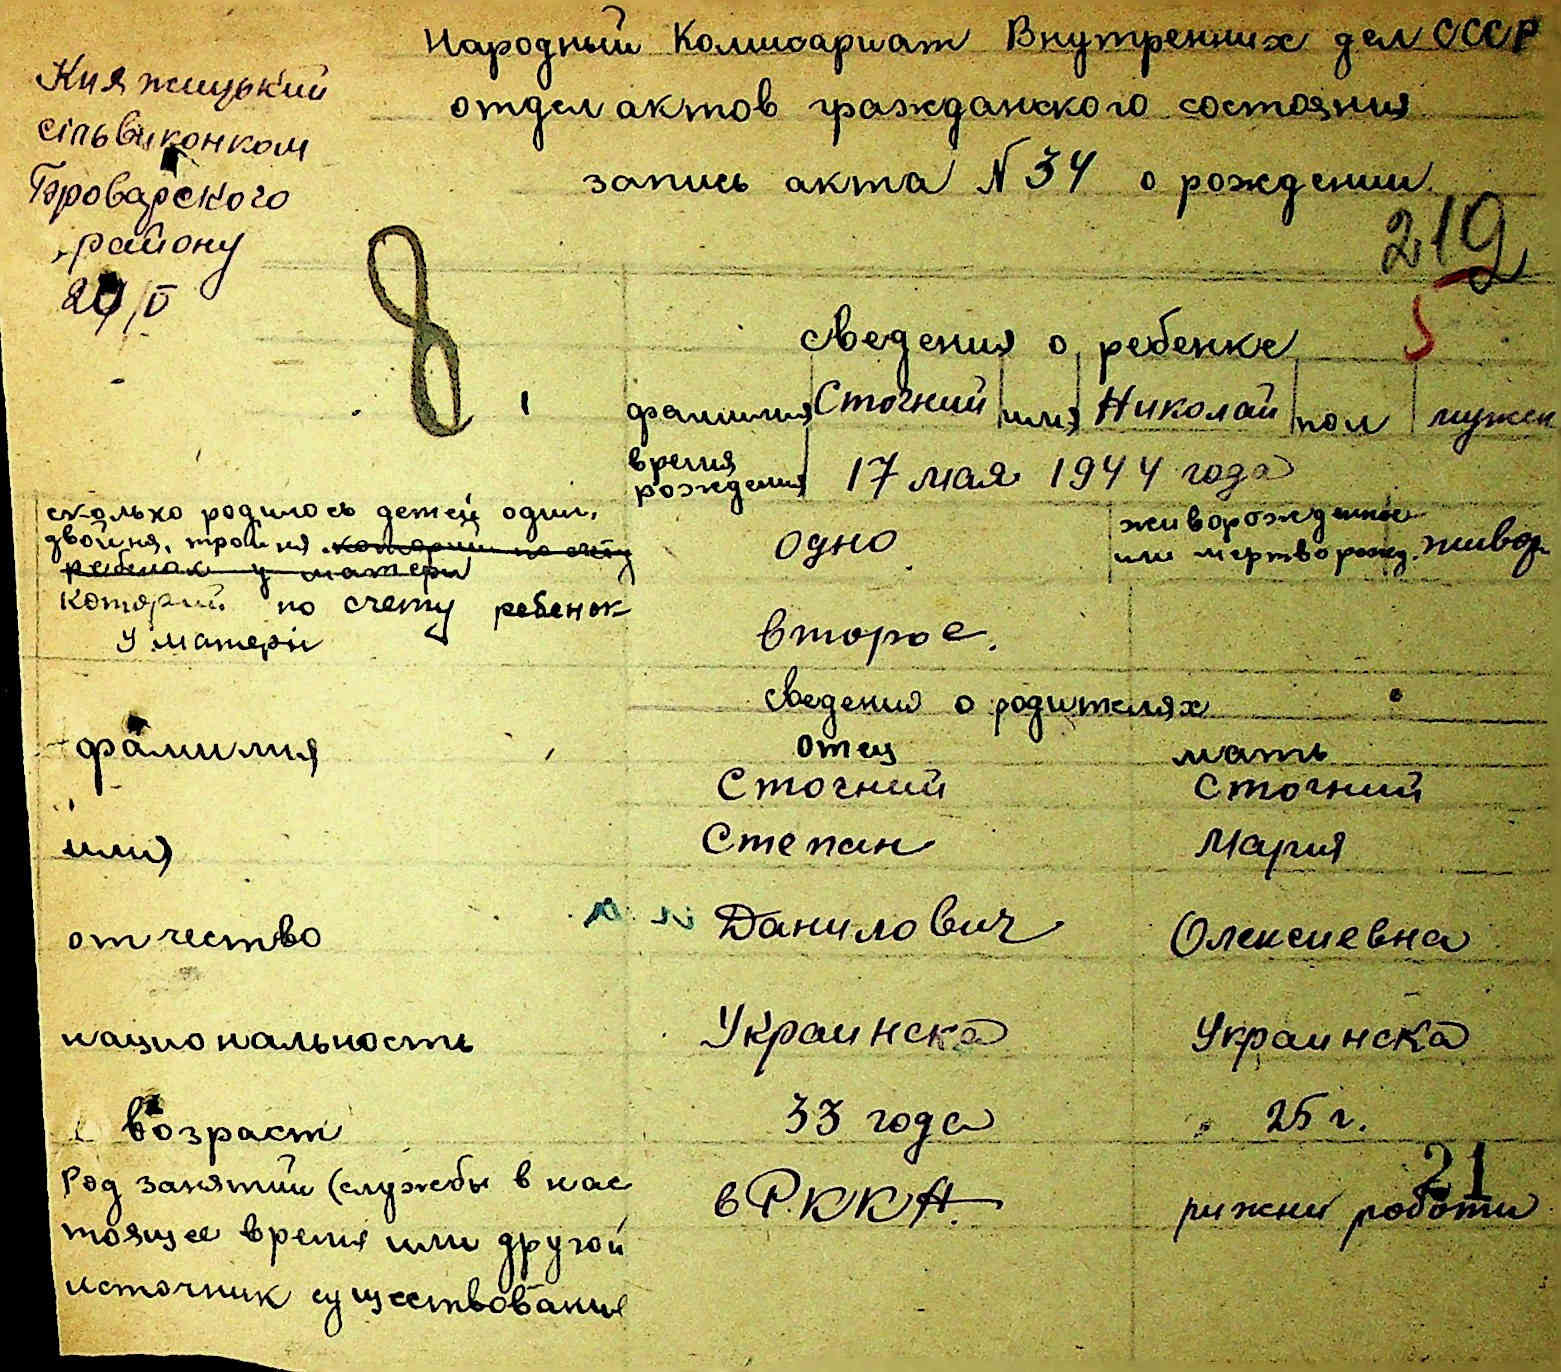 Народный Комисариат Внутренних дел СССР
отдел актов гражданского состояния
запись акта N 34 о рождении.
Княжицький
сільвиконком
Броварского
району
219
5
8
сведения о ребенке
1 фамилия Сточний имя Николай пол мужск
время
рождения 17 мая 1944 года
сколько родилось детей один,
двойня, тройня который по счету
ребенок у матери
одно
живорожденное
или мертворожд. живор
который по счету ребенок
у матери
второе.
сведения о родителях
фамилия отец мать
Сточний Сточний
имя Степан Мария
отчество Данилович Олексиевна
национальность Украинска Украинска
возраст 33 года 25 г.
21
Род занятий (службы в нас
тоящее время или другой
источник существования
в Р.ККА. рижни роботи